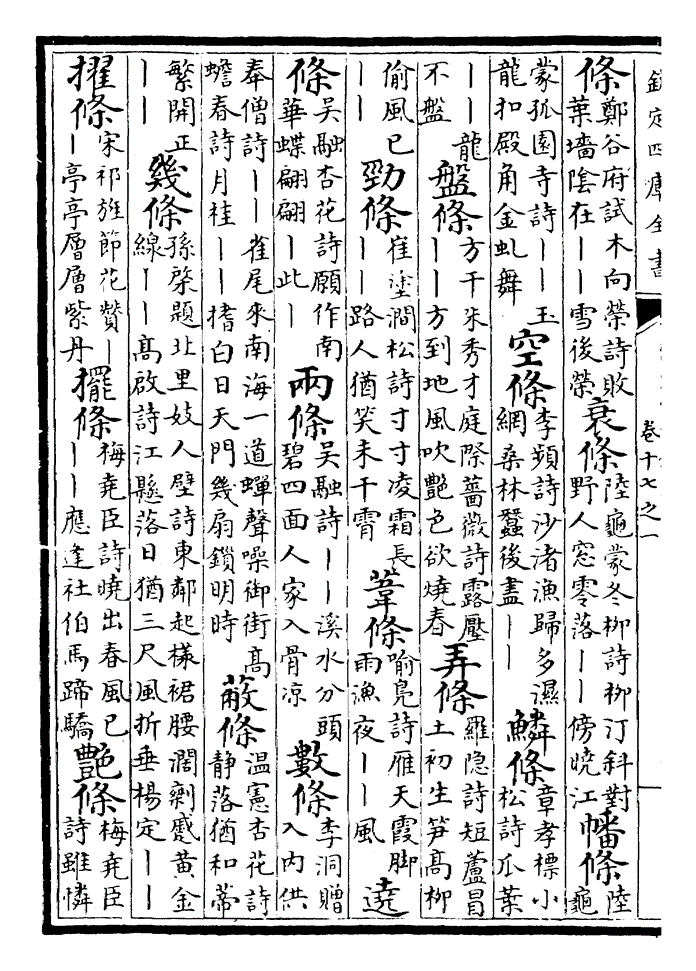 欽定四庫全書
卷十七之一
條鄭谷府試木向榮詩敗葉墻陰在——雪後榮衰條陸龜蒙冬柳詩柳汀斜對野人窓零落——傍曉江幡條陸龜
蒙孤園寺詩——玉龍扣殿角金虬舞空條李頻詩沙渚漁歸多濕網桑林蠶後盡——鱗條章孝標小松詩爪葉
——龍不盤盤條方干朱秀才庭際薔薇詩露壓——方到地風吹艷色欲燒春弄條羅隐詩短蘆冒土初生笋高柳
偷風已——勁條崔塗澗松詩寸寸凌霜長——路人猶笑未干霄葦條喻鳧詩雁天霞脚雨漁夜——風遶
條吳融杏花詩願作南華蝶翩翩—此—兩條吳融詩——溪水分頭碧四面人家入骨凉數條李洞贈入内供
奉僧詩——雀尾來南海一道蟬聲噪御街高蟾春詩月桂——榰白日天門幾扇鎖明時蔽條温憲杏花詩静落猶和蒂
繁開正——幾條孫棨題北里妓人壁詩東鄰起樣裙腰濶剩蹙黄金線——高啟詩江縣落日猶三尺風折垂楊定——
擢條宋祁旌節花贊——亭亭層層紫丹擺條梅堯臣詩曉出春風已——應逢社伯馬蹄驕艶條梅堯臣詩雖憐